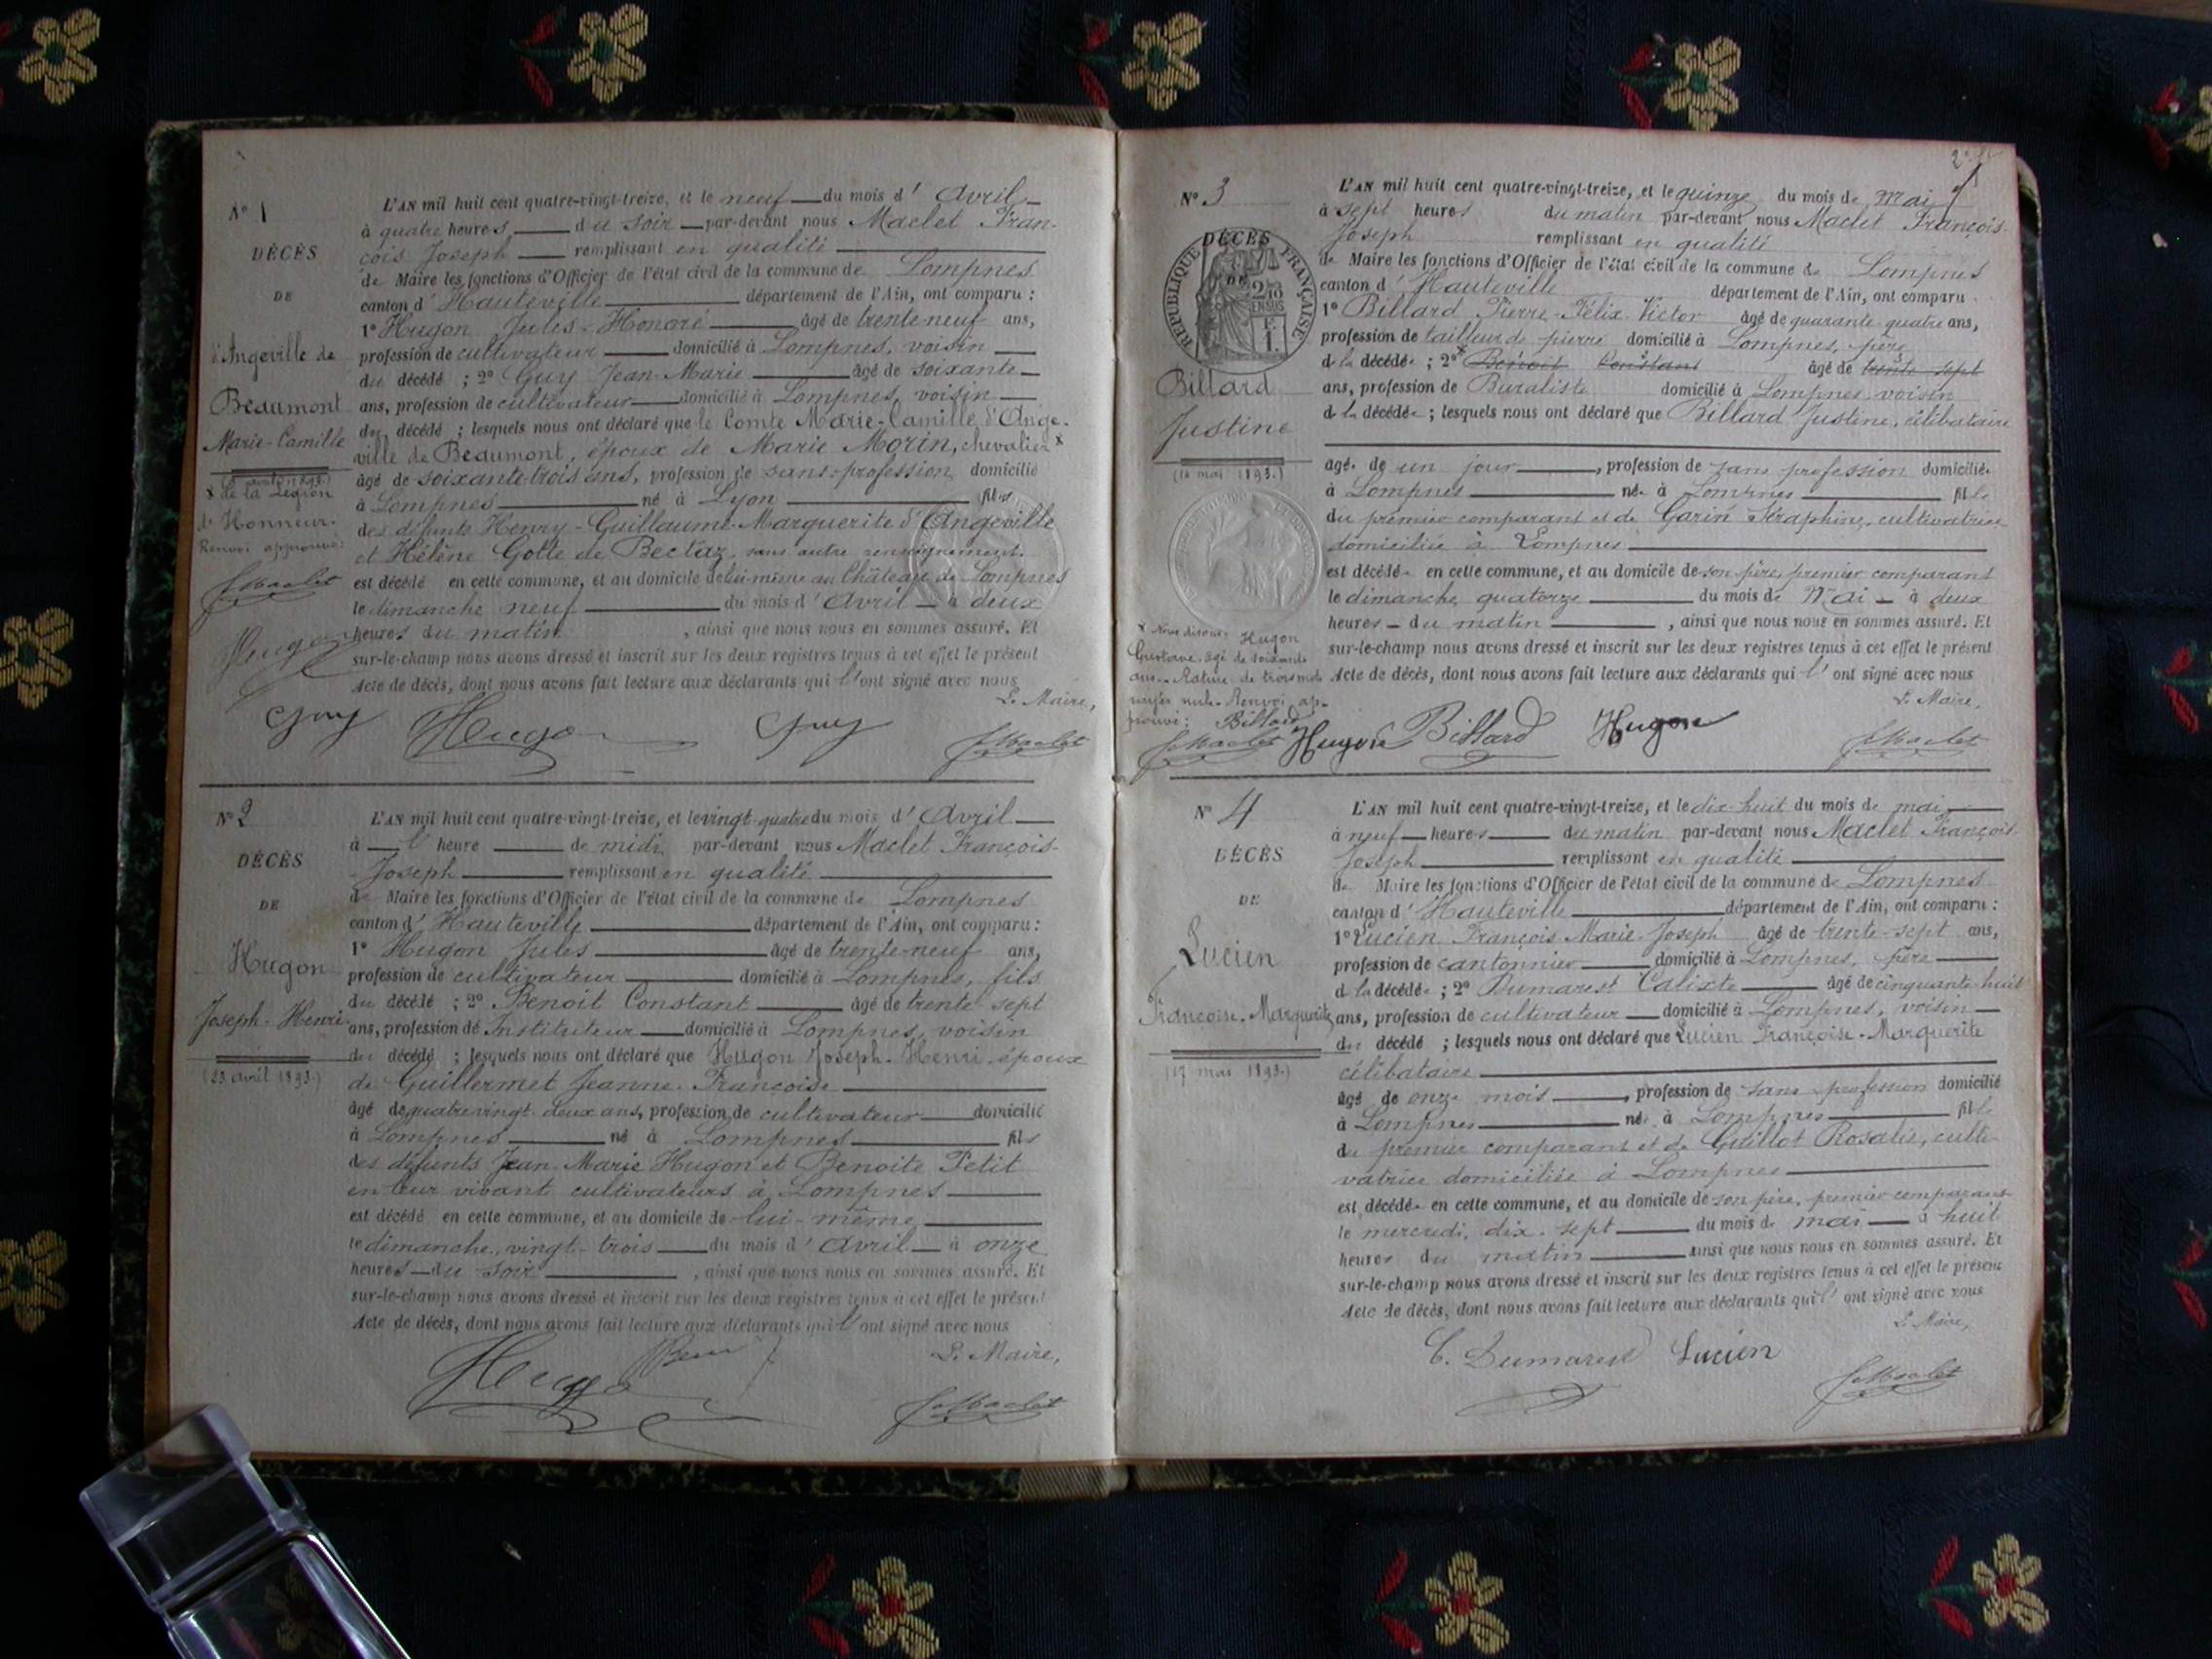 N° 1
DÉCÈS
DE
d'Angeville de
Beaumont
Marie-Camille
x de la Légion
d'Honneur.
Renvoi approuvé:
fMaclet
Hugon
L'AN mil huit cent quatre-vingt-treize, et le neuf du mois d' Avril
à quatre heures du soir par-devant nous Maclet Fran-
cois Joseph remplissant en qualité
de Maire les fonctions d'Officier de l'état civil de la commune de Lompnes
canton d' Hauteville département de l'Ain, ont comparu :
1° Hugon Jules-Honoré âgé de trente-neuf ans,
profession de cultivateur domicilié à Lompnes, voisin
du décédé ; 2° Guy Jean-Marie âgé de soixante
ans, profession de cultivateur domicilié à Lompnes, voisin
du décédé ; lesquels nous ont déclaré que le Comte Marie-Camille d'Ange-
ville de Beaumont, époux de Marie Morin, chevalier x
âgé de soixante-trois ans, profession de sans-profession domicilié
à Lompnes né à Lyon fils
des défunts Henry-Guillaume-Marguerite d'Angeville
et Hélène Golle de sans autre renseignement.
est décédé en cette commune, et au domicile de lui-même au Château de Lompnes
le dimanche neuf du mois d' Avril à deux
heures du matin , ainsi que nous nous en sommes assuré. Et
sur-le-champ nous avons dressé et inscrit sur les deux registres tenus à cet effet le présent
Acte de décès, dont nous avons fait lecture aux déclarants qui l'ont signé avec nous
Le Maire,
Guy Hugon Guy fMaclet
N° 2
DÉCÈS
DE
Hugon
Joseph-Henri
(23 avril 1893.)
L'AN mil huit cent quatre-vingt-treize, et le vingt-quatre du mois d' Avril
à l' heure de midi par-devant nous Maclet François-
Joseph remplissant en qualité
de Maire les fonctions d'Officier de l'état civil de la commune de Lompnes
canton d' Hauteville département de l'Ain, ont comparu :
1° Hugon Jules âgé de trente-neuf ans,
profession de cultivateur domicilié à Lompnes, fils
du décédé ; 2° Benoit Constant âgé de trente-sept
ans, profession de Instituteur domicilié à Lompnes, voisin
du décédé ; lesquels nous ont déclaré que Hugon Joseph-Henri époux
de Guillermet Jeanne-Françoise
âgé de quatre-vingt-deux ans, profession de cultivateur domicilié
à Lompnes né à Lompnes fils
des défunts Jean-Marie Hugon et Benoite Petit
en leur vivant cultivateurs à Lompnes
est décédé en cette commune, et au domicile de lui-même
le dimanche, vingt-trois du mois d' Avril à onze
heures du soir , ainsi que nous nous en sommes assuré. Et
sur-le-champ nous avons dressé et inscrit sur les deux registres tenus à cet effet le présent
Acte de décès, dont nous avons fait lecture aux déclarants qui l'ont signé avec nous
Le Maire,
Hugon fMaclet
N° 3
DÉCÈS
DE
RÉPUBLIQUE FRANÇAISE
2/10 EN SUS
F. 1.
Billard
Justine
(14 mai 1893.)
x Nous disons: Hugon
Gustave, âgé de soixante
ans. Rature de trois mots
rayés nuls. Renvoi ap-
prouvé: Billard
fMaclet Hugon
L'AN mil huit cent quatre-vingt-treize, et le quinze du mois de mai
à sept heures du matin par-devant nous Maclet François
Joseph remplissant en qualité
de Maire les fonctions d'Officier de l'état civil de la commune de Lompnes
canton d' Hauteville département de l'Ain, ont comparu
1° Billard Pierre-Félix-Victor âgé de quarante-quatre ans,
profession de tailleur de pierre domicilié à Lompnes, père
de la décédée ; 2° x Benoit Constant âgé de trente-sept
ans, profession de Buraliste domicilié à Lompnes voisin
de la décédée ; lesquels nous ont déclaré que Billard Justine, célibataire
âgée de un jour, profession de sans profession domiciliée
à Lompnes née à Lompnes fille
du premier comparant et de Garin Séraphine, cultivatrice
domiciliée à Lompnes
est décédée en cette commune, et au domicile de son père, premier comparant
le dimanche quatorze du mois de Mai à deux
heures du matin , ainsi que nous nous en sommes assuré. Et
sur-le-champ nous avons dressé et inscrit sur les deux registres tenus à cet effet le présent
Acte de décès, dont nous avons fait lecture aux déclarants qui l'ont signé avec nous
Le Maire,
Billard Hugon fMaclet
N° 4
DÉCÈS
DE
Lucien
Françoise-Marguerite
(17 mai 1893.)
L'AN mil huit cent quatre-vingt-treize, et le dix-huit du mois de mai
à neuf heures du matin par-devant nous Maclet François
Joseph remplissant en qualité
de Maire les fonctions d'Officier de l'état civil de la commune de Lompnes
canton d' Hauteville département de l'Ain, ont comparu :
1° Lucien François Marie-Joseph âgé de trente-sept ans,
profession de cantonnier domicilié à Lompnes, père
de la décédée ; 2° Dumarest Calixte âgé de cinquante-huit
ans, profession de cultivateur domicilié à Lompnes, voisin
du décédé ; lesquels nous ont déclaré que Lucien Françoise-Marguerite
célibataire
âgé de onze mois, profession de sans profession domicilié
à Lompnes née à Lompnes fille
du premier comparant et de Guillot Rosalie, culti-
vatrice domiciliée à Lompnes
est décédée en cette commune, et au domicile de son père, premier comparant
le mercredi, dix-sept du mois de mai à huit
heures du matin ainsi que nous nous en sommes assuré. Et
sur-le-champ nous avons dressé et inscrit sur les deux registres tenus à cet effet le présent
Acte de décès, dont nous avons fait lecture aux déclarants qui l'ont signé avec nous
Le Maire,
C. Dumarest Lucien fMaclet